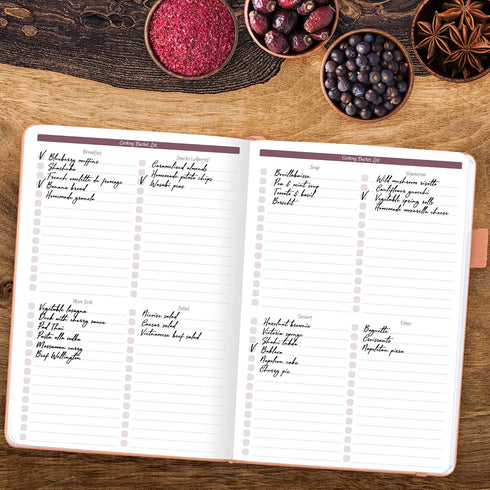 Cooking Bucket List
Breakfast
Blueberry muffins
Shashuka
French omelette du fromage
Banana bread
Homemade granola
Snacks (Aperitif)
Caramelised almonds
Homemade potato chips
Wasabi peas
Main Dish
Vegetable lasagna
Duck with cherry sauce
Pad Thai
Pasta alla vodka
Massaman curry
Beef Wellington
Salad
Nicoise salad
Caesar salad
Vietnamese beef salad
Cooking Bucket List
Soup
Bouillabaisse
Pea & mint soup
Tomato & basil
Borscht
Vegetarian
Wild mushroom risotto
Cauliflower gnocchi
Vegetable spring rolls
Homemade mozarella cheese
Dessert
Hazelnut brownie
Victoria sponge
Baklava
Napoleon cake
Cherry pie
Other
Baguette
Croissants
Napoletan pizza